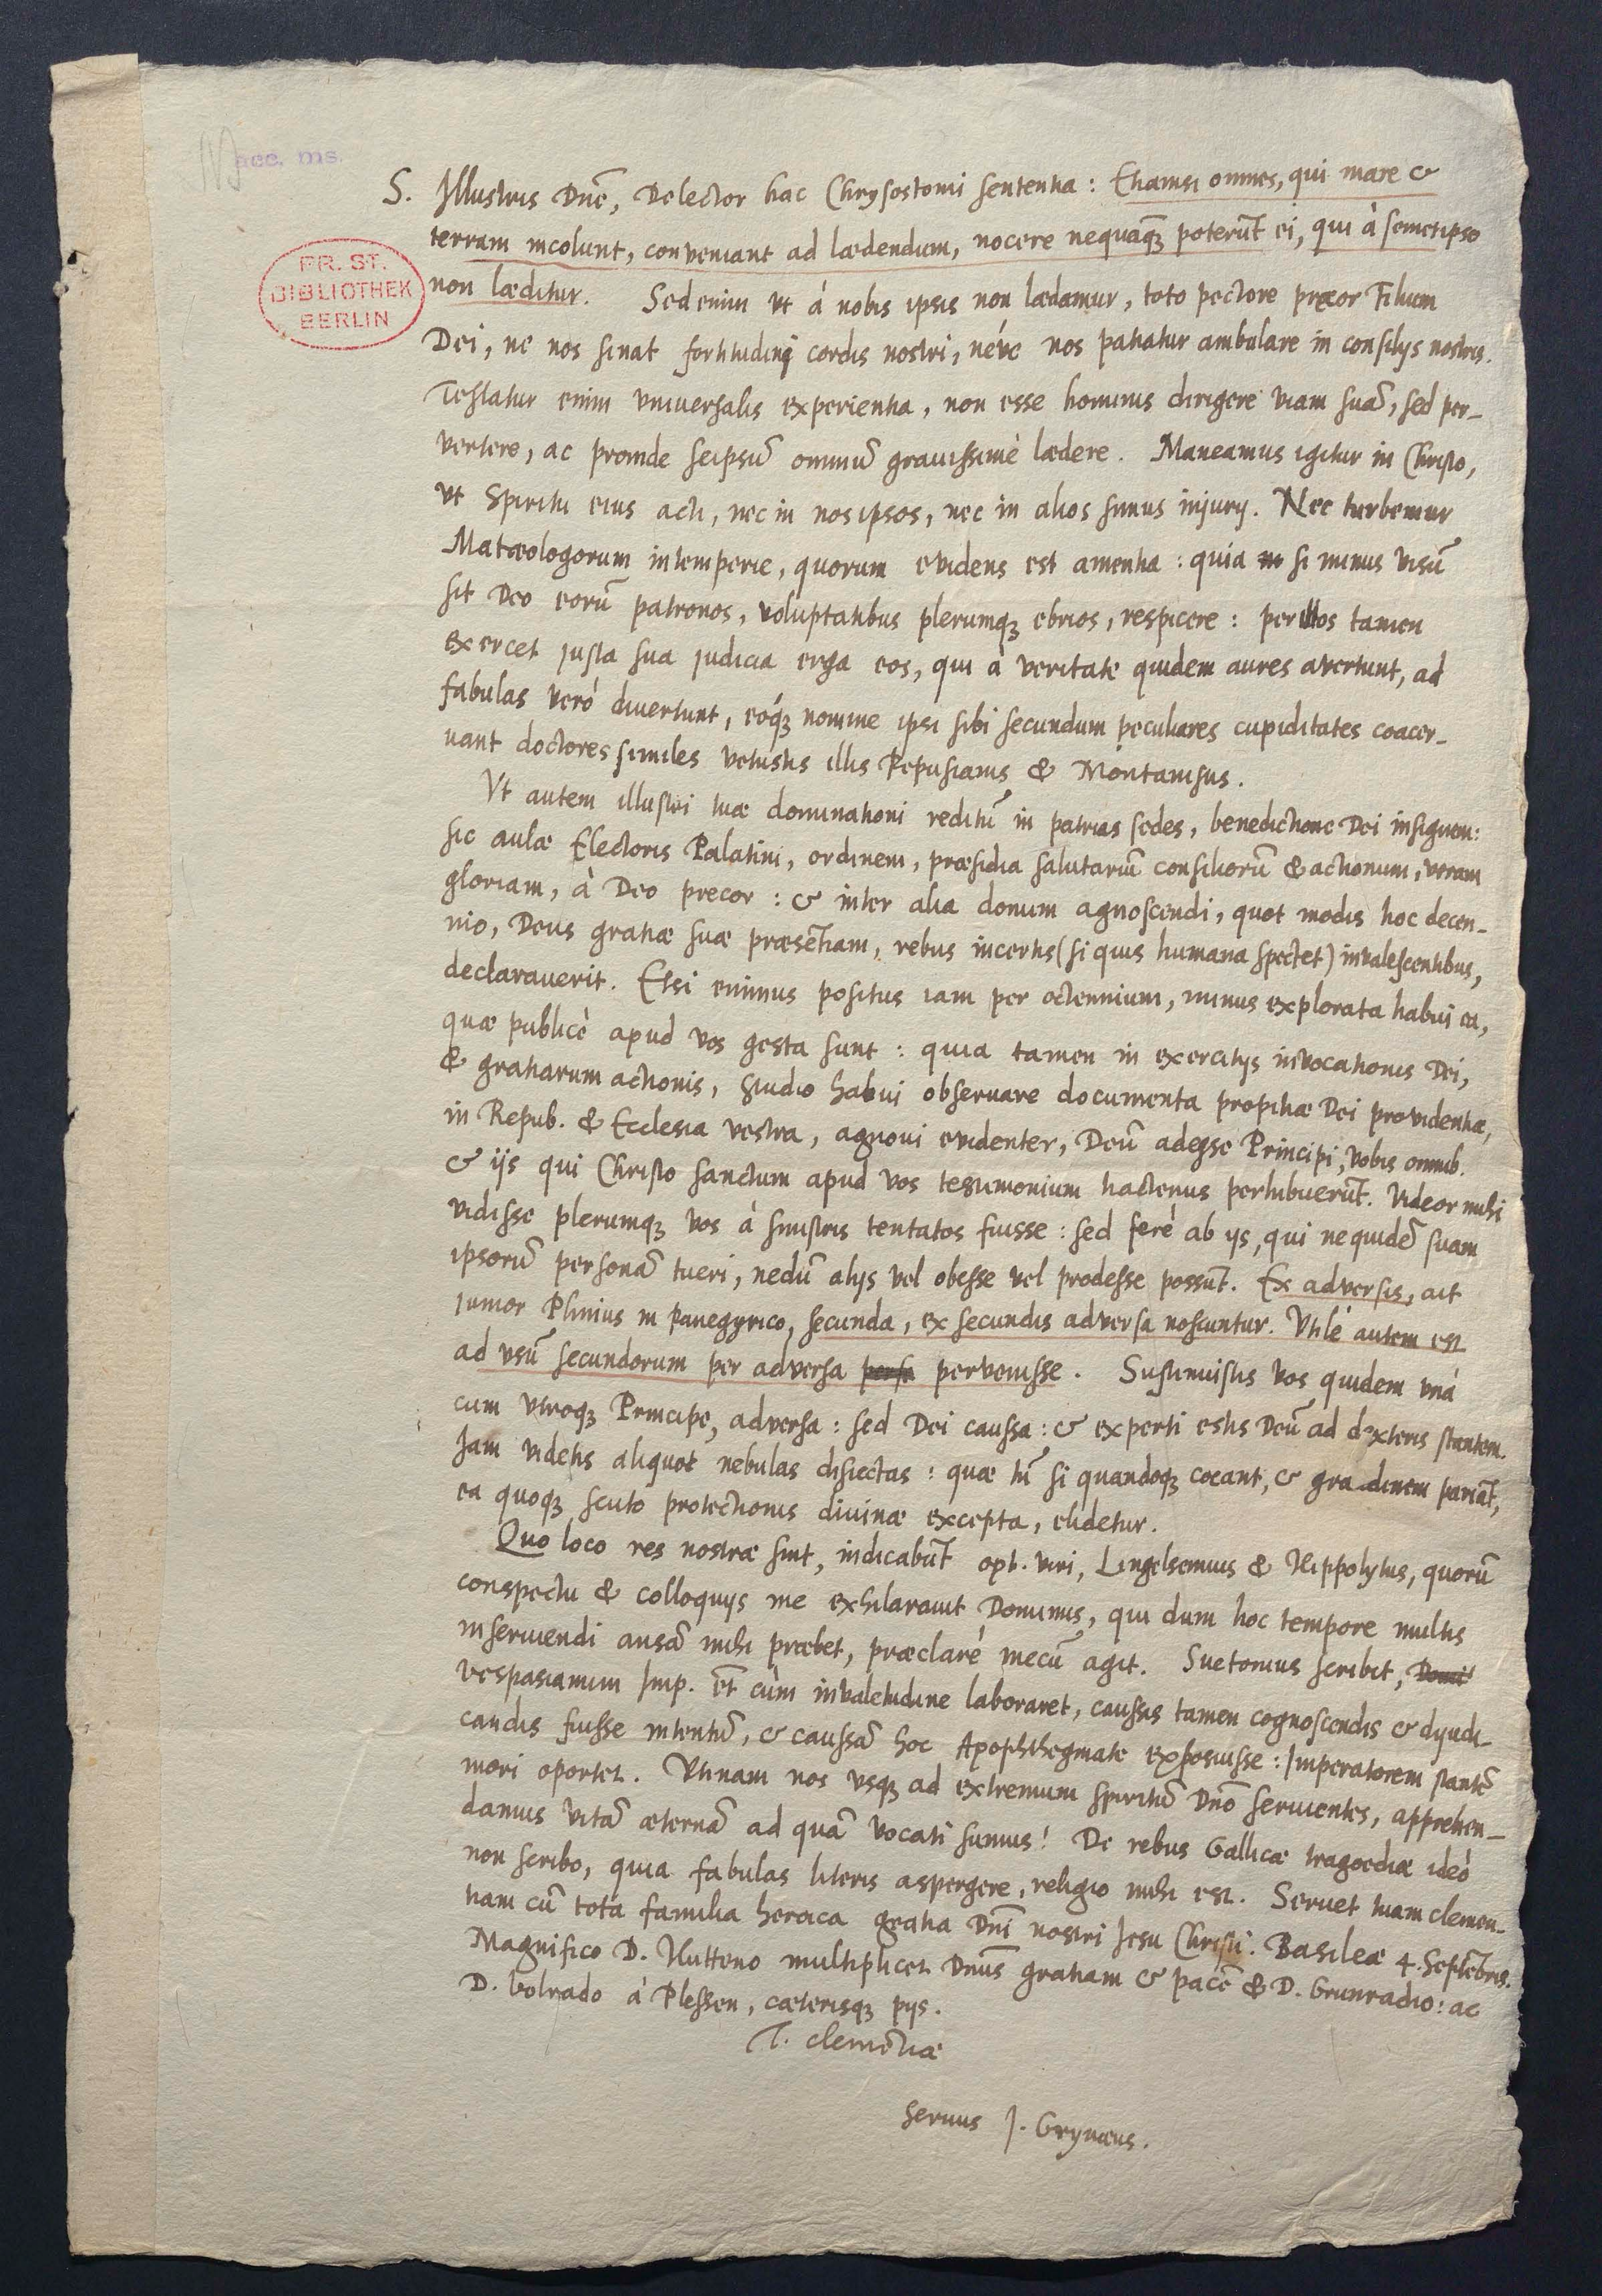 acc. ms.
PR. ST.
BIBLIOTHEK
BERLIN
S. Illustris Dnē, Delector hac Chrysostomi sententia: Etiamsi omnes, qui mare &
terram incolunt, conveniant ad lædendum, nocere nequaq̃ꝫ poterūt ei, qui à semetipso
non læditur. Sed enim vt á nobis ipsis non lædamur, toto pectore precor Filium
Dei, ne nos sinat fortitudini cordis nostri, néve nos patiatur ambulare in consilijs nostris.
Testatur enim vniversalis experientia, non esse hominis dirigere viam suā, sed per-
vertere, ac proinde seipsū omniū gravissimè lædere. Maneamus igitur in Christo,
vt Spiritu eius acti, nec in nos ipsos, nec in alios simus injurij. Nec turbemur
Matæologorum intemperie, quorum evidens est amentia: quia si minus visū
sit Deo eorū patronos, voluptatibus plerumqꝫ ebrios, respicere: per illos tamen
exercet justa sua judicia erga eos, qui à veritate quidem aures avertunt, ad
fabulas veró divertunt, eóqꝫ nomine ipsi sibi secundum peculiares cupiditates coacer-
uant doctores similes vetustis illis Pepusianis & Montanistis.
Vt autem illustri tuæ dominationi reditū in patrias sedes, benedictione Dei insignem:
sic aulæ Electoris Palatini, ordinem, præsidia salutariū consiliorū & actionum, veram
gloriam, à Deo precor: & inter alia donum agnoscendi, quot modis hoc decen-
nio, Deus gratiæ suæ præsētiam, rebus incertis (si quis humana spectet) invalescentibus,
declaraverit. Etsi eminus positus iam per octennium, minus explorata habui ea,
quæ publicè apud vos gesta sunt: quia tamen in exercitijs invocationis Dei,
& gratiarum actionis, studio habui observare documenta propitiæ Dei providentiæ,
in Repub. & Ecclesia vestra, agnovi evidenter, Deū adesse Principi, vobis omnib.
& ijs qui Christo sanctum apud vos testimonium hactenus perhibuerūt. Videor mihi
vidisse plerumqꝫ vos á sinistris tentatos fuisse: sed ferè ab ijs, qui ne quidē suam
ipsorū personā tueri, nedū alijs vel obesse vel prodesse possūt. Ex adversis, ait
junior Plinius in panegyrico, secunda, ex secundis adversa noscuntur. Vtilè autem est
ad vsū secundorum per adversa pervenisse. Sustinuistis vos quidem vná
cum vtroqꝫ Principe, adversa: sed Dei caussa: & experti estis Deū ad dexteris stantem.
Jam videtis aliquot nebulas disiectas: quæ tū si quandoqꝫ coeant, & grandinem pariāt,
ea quoqꝫ scuto protectionis divinæ excepta, elidetur.
Quo loco res nostræ sint, indicabūt opt. viri, Lingelsemius & Hippolytus, quorū
conspectu & colloquijs me exhilaravit Dominus, qui dum hoc tempore multis
inserviendi ansā mihi præbet, præclarè mecū agit. Suetonius scribit,
Vespasianum Imp. et cùm invaletudine laboraret, caussis tamen cognoscendis & dijudi-
candis fuisse intentū, & caussā hoc Apophthegmate exposuisse: Imperatorem stantē
mori oportet. Vtinam nos vsqꝫ ad extremum spiritū Dno servientes, apprehen-
damus vitā æternā ad quā vocati sumus! De rebus Gallicæ tragoediæ ideó
non scribo, quia fabulas literis aspergere, religio mihi est. Servet tuam clemen-
tiam cū tota familia heroica gratia Dni nostri Jesu Christi. Basileæ 4. Septēbris.
Magnifico D. Hutteno multiplicet Dnus gratiam & pacē & D. Grunradio: ac
D. Volrado à Plessen, cæterisqꝫ pijs.
T. clemētiæ
servus J. Grynæus.